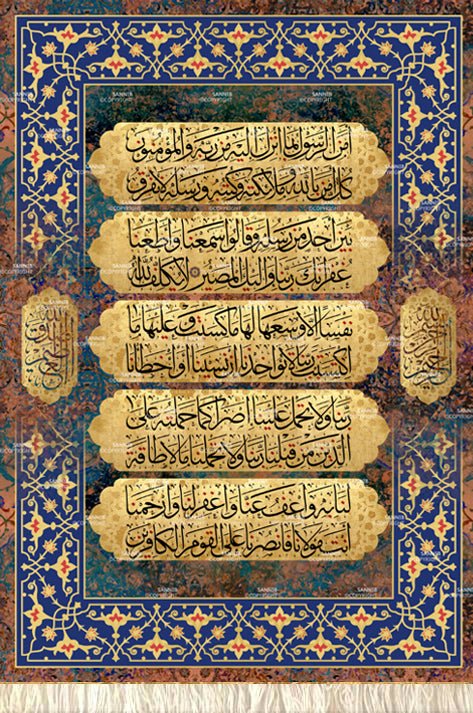 آمن الرسول بما انزل اليه من ربه والمؤمنون
كل آمن بالله وملائكته وكتبه ورسله لا نفرق
بين احد من رسله وقالوا سمعنا واطعنا
غفرانك ربنا واليك المصير لا يكلف الله
نفسا الا وسعها لها ما كسبت وعليها ما
اكتسبت ربنا لا تؤاخذنا ان نسينا او اخطأنا
ربنا ولا تحمل علينا اصرا كما حملته على
الذين من قبلنا ربنا ولا تحملنا ما لا طاقة
لنا به واعف عنا واغفر لنا وارحمنا
انت مولانا فانصرنا على القوم الكافرين
SANN18
©COPYRIGHT